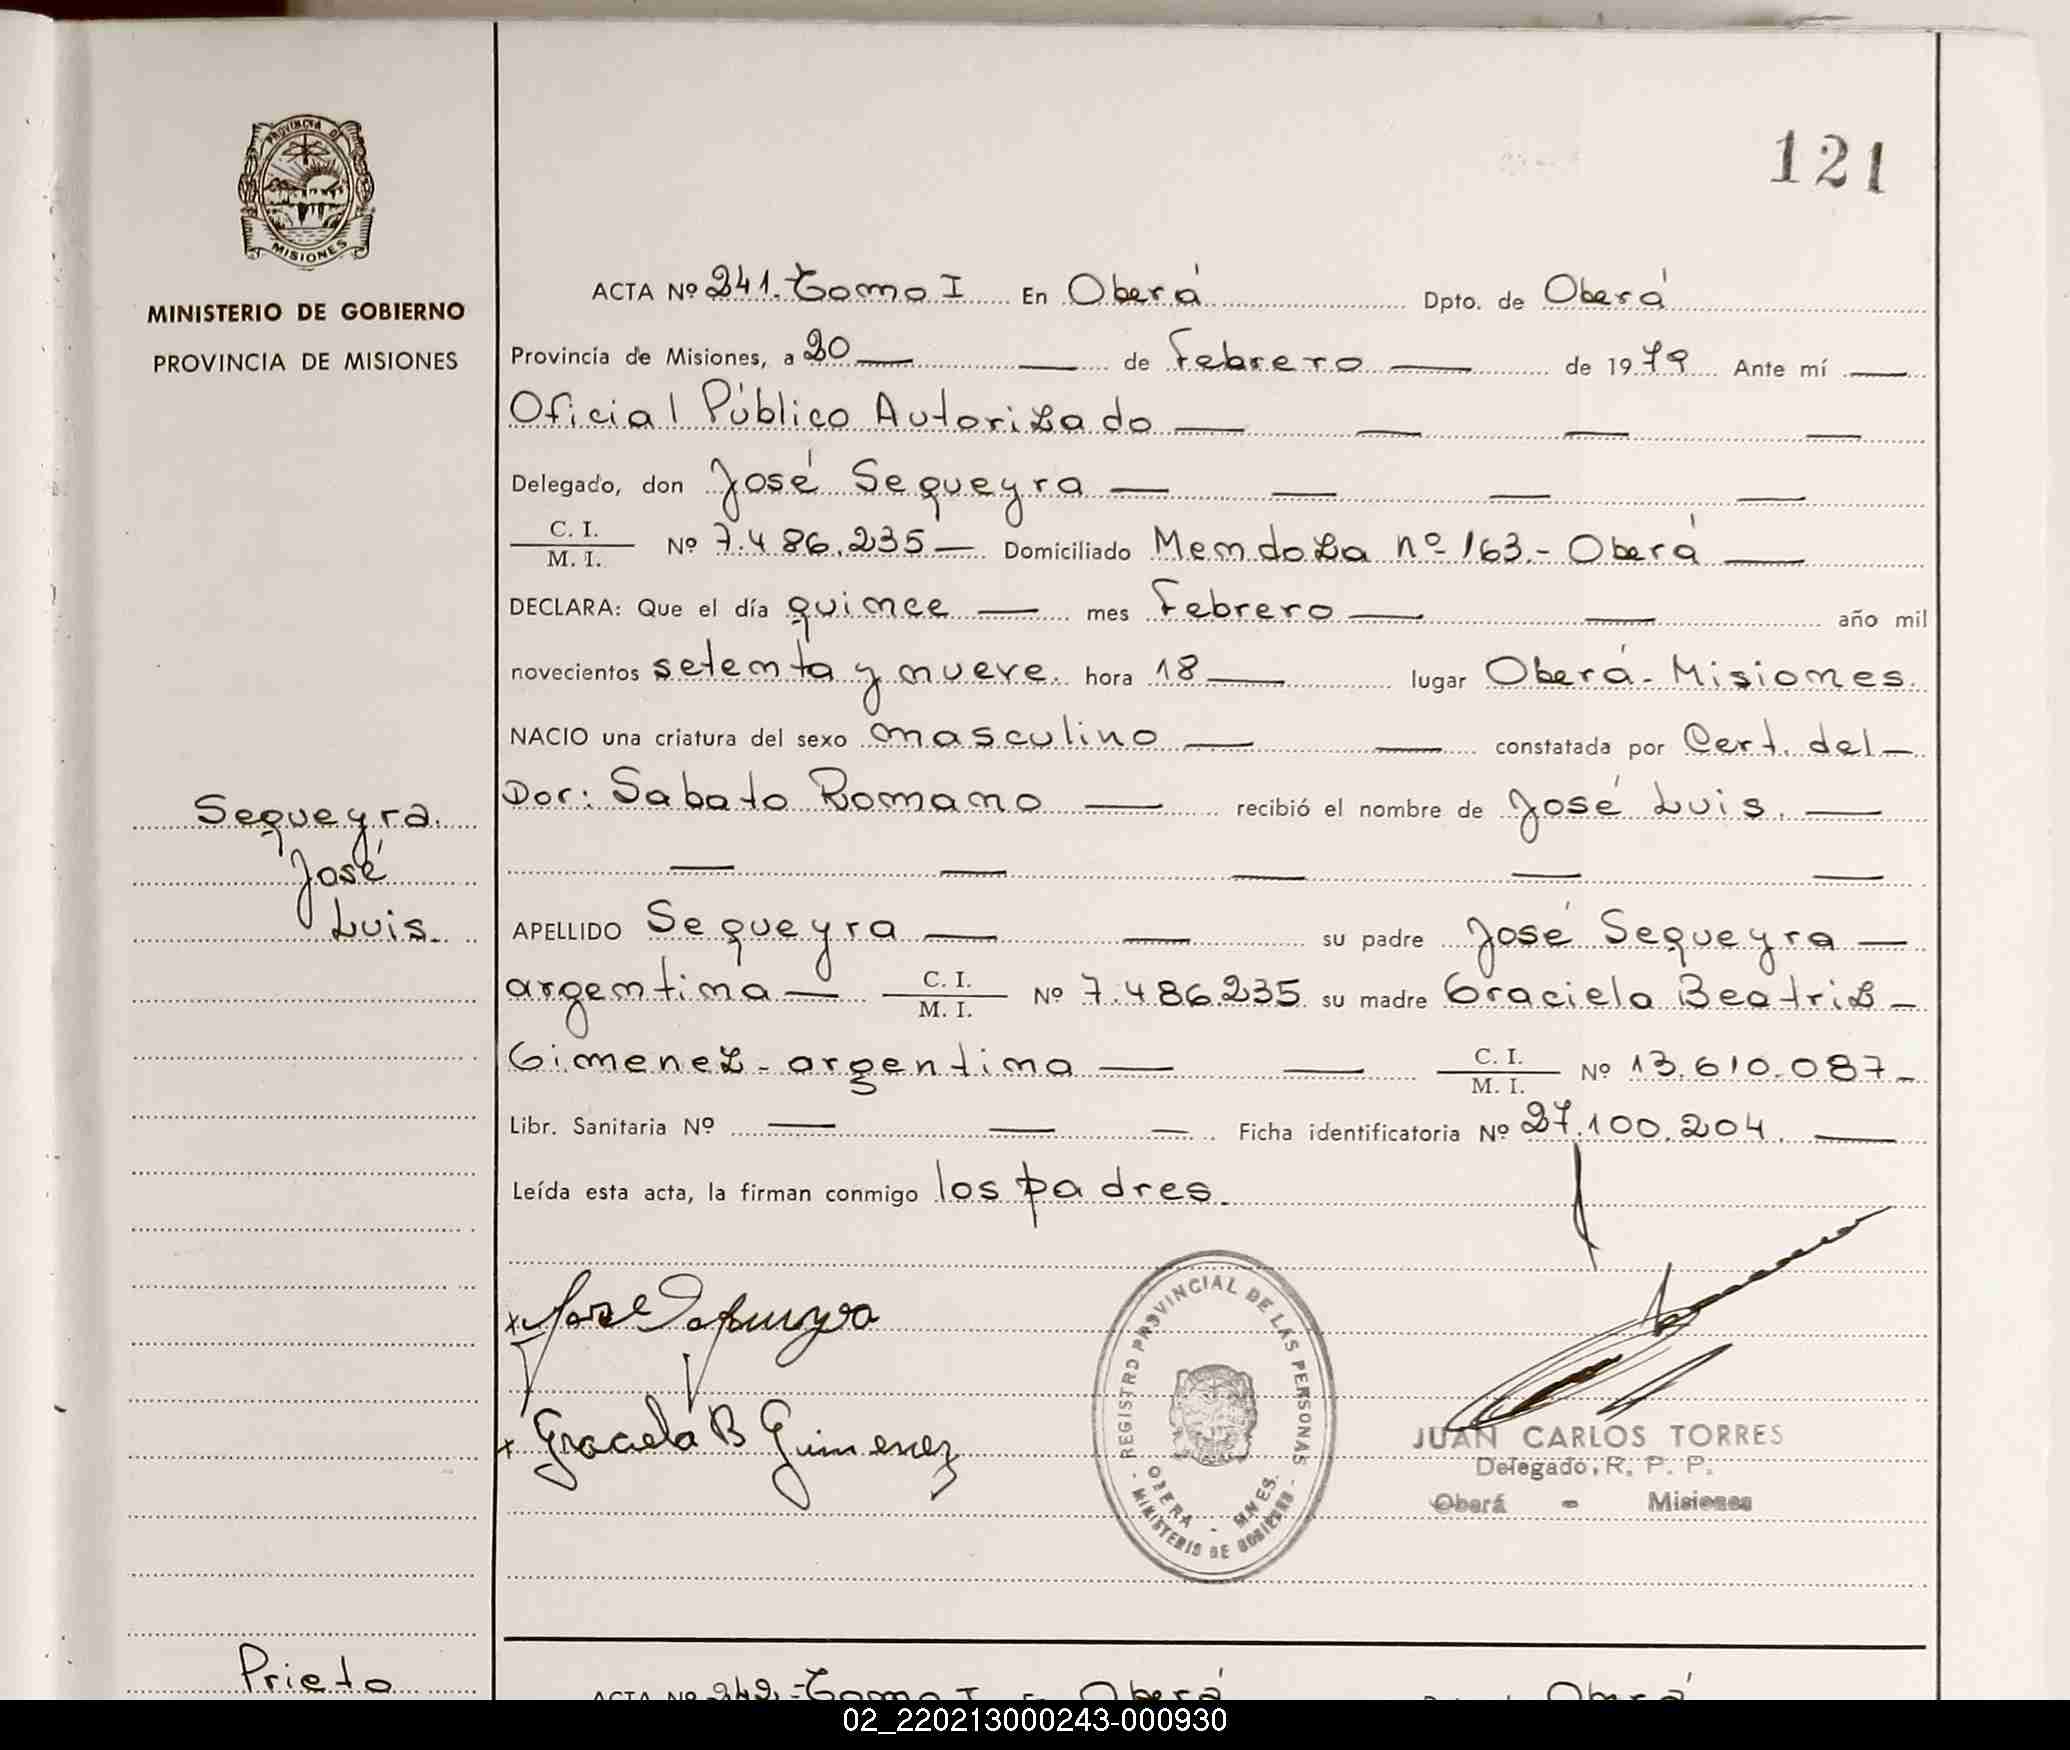 PROVINCIA DE
MISIONES
MINISTERIO DE GOBIERNO
PROVINCIA DE MISIONES
121
ACTA Nº 241. Tomo I En Oberá Dpto. de Oberá
Provincia de Misiones, a 20 — — de Febrero — de 1979 Ante mí —
Oficial Público Autorizado — — — —
Delegado, don José Sequeyra — — — —
C. I.
M. I. Nº 7.486.235 — Domiciliado Mendoza nº 163.- Oberá —
DECLARA: Que el día quince — mes Febrero — — año mil
novecientos setenta y nueve. hora 18 — lugar Oberá - Misiones.
NACIO una criatura del sexo masculino — — constatada por Cert. del —
Dor: Sabato Romano — recibió el nombre de José Luis. —
— — — — —
APELLIDO Sequeyra — — su padre José Sequeyra —
argentina — C. I.
M. I. Nº 7.486.235 su madre Graciela Beatriz —
Gimenez - argentina — — C. I.
M. I. Nº 13.610.087 -
Libr. Sanitaria Nº — — — Ficha identificatoria Nº 27.100.204. —
Leída esta acta, la firman conmigo los padres.
Sequeyra.
José
Luis.
x Jose Sequeyra
x Graciela B Gimenez
- REGISTRO PROVINCIAL DE LAS PERSONAS -
OBERA - MNES.
MINISTERIO DE GOBIERNO
JUAN CARLOS TORRES
Delegado, R. P. P.
Oberá - Misiones
Prieto
ACTA Nº 242.- Tomo I En Oberá Oberá
02_220213000243-000930